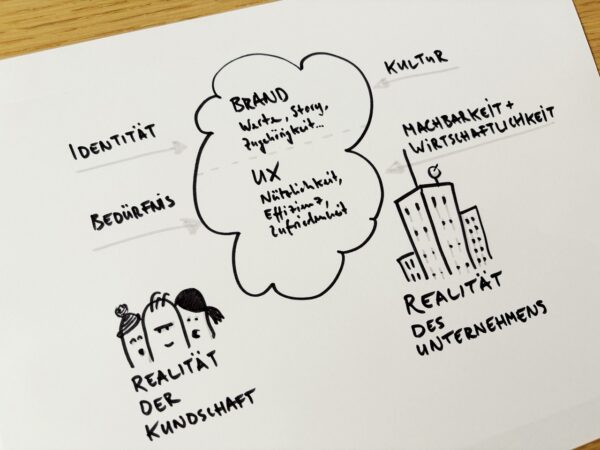 BRAND
Werte, Story,
Zugehörigkeit...
UX
Nützlichkeit,
Effizienz,
Zufriedenheit
IDENTITÄT
BEDÜRFNIS
KULTUR
MACHBARKEIT +
WIRTSCHAFTLICHKEIT
REALITÄT
DER
KUNDSCHAFT
REALITÄT
DES
UNTERNEHMENS